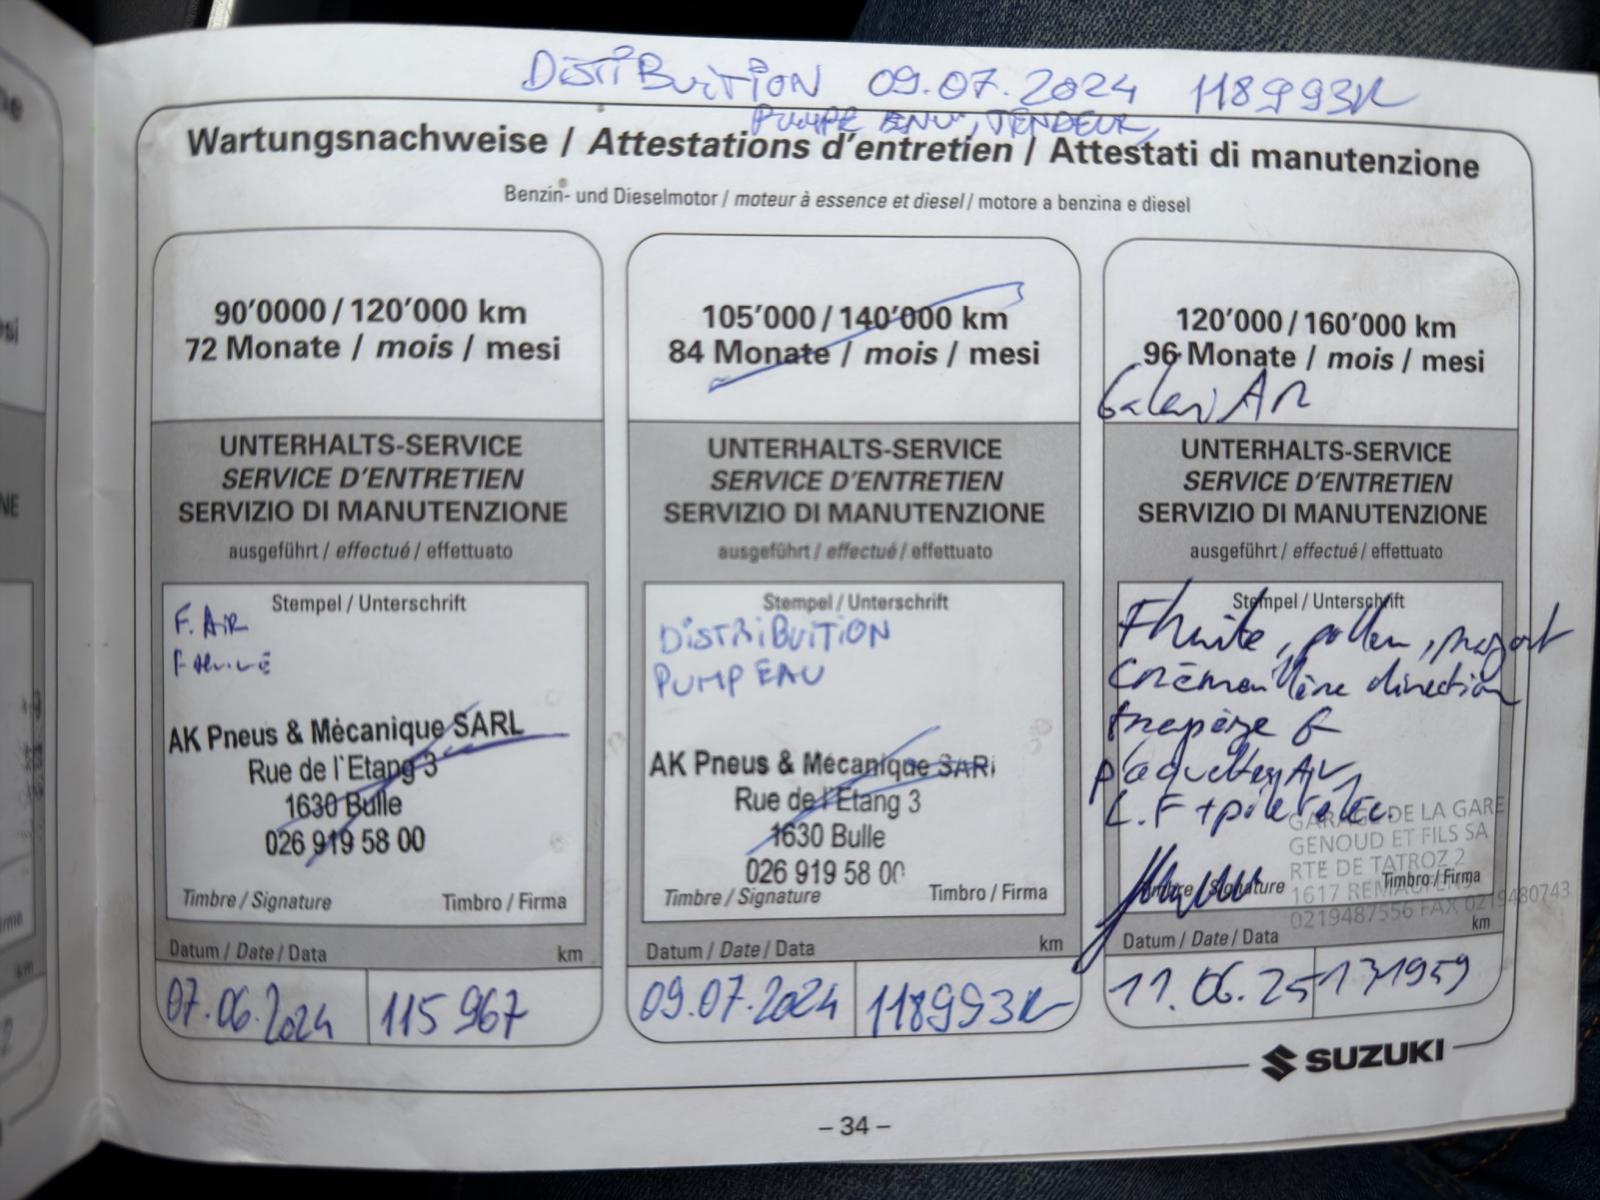 DISTRIBUITION 09.07.2024 118993K
PUMPE EAU, TENDEUR,
Wartungsnachweise / Attestations d'entretien / Attestati di manutenzione
Benzin- und Dieselmotor / moteur à essence et diesel / motore a benzina e diesel
90'0000 / 120'000 km
72 Monate / mois / mesi
UNTERHALTS-SERVICE
SERVICE D'ENTRETIEN
SERVIZIO DI MANUTENZIONE
ausgeführt / effectué / effettuato
Stempel / Unterschrift
F. AiR
AK Pneus & Mécanique SARL
Rue de l'Etang 3
1630 Bulle
026 919 58 00
Timbre / Signature Timbro / Firma
Datum / Date / Data km
07.06.2024 115967
105'000 / 140'000 km
84 Monate / mois / mesi
UNTERHALTS-SERVICE
SERVICE D'ENTRETIEN
SERVIZIO DI MANUTENZIONE
ausgeführt / effectué / effettuato
Stempel / Unterschrift
DISTRIBUITION
PUMP EAU
AK Pneus & Mécanique SARL
Rue de l'Etang 3
1630 Bulle
026 919 58 00
Timbre / Signature Timbro / Firma
Datum / Date / Data km
09.07.2024 118993K
120'000 / 160'000 km
96 Monate / mois / mesi
AR
UNTERHALTS-SERVICE
SERVICE D'ENTRETIEN
SERVIZIO DI MANUTENZIONE
ausgeführt / effectué / effettuato
Stempel / Unterschrift
Fhuile, pollen, mazout
Crémaillère direction
trapèze G
plaquettes AV
L.F + pile téléc.
GARAGE DE LA GARE
GENOUD ET FILS SA
RTE DE TATROZ 2
1617 REMAUFENS
0219487556 FAX 0219480743
Timbre / Signature Timbro / Firma
Datum / Date / Data km
11.06.25 131959
SUZUKI
– 34 –